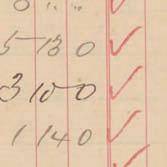 0 " "
5 13 0
3 10 0
1 14 0